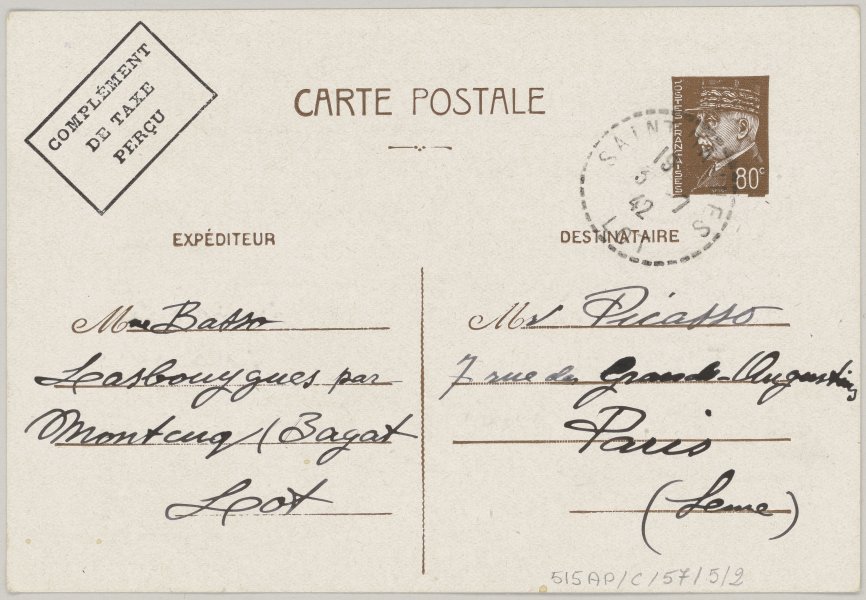 COMPLÉMENT
DE TAXE
PERÇU
CARTE POSTALE
POSTES FRANÇAISES
80c
SAINT
19
3 -7
42
LOT
EXPÉDITEUR
Mme Basso
Lasbouygues par
Montcuq (Bagat
Lot
DESTINATAIRE
Mr Picasso
7 rue des Grands-Augustins
Paris
(Seine)
515AP/C/57/5/2